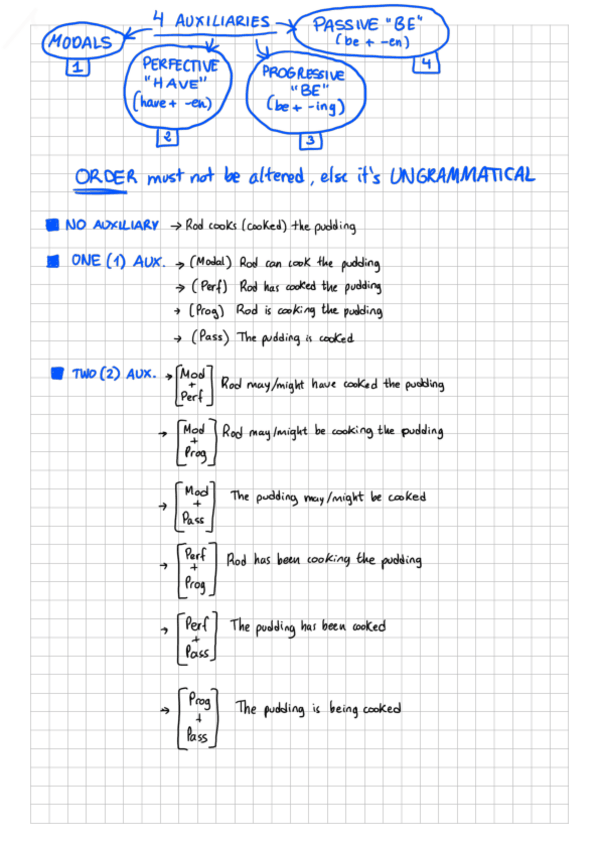 4 AUXILIARIES
MODALS
1
PERFECTIVE
"HAVE"
(have + -en)
2
PROGRESSIVE
"BE"
(be + -ing)
3
PASSIVE "BE"
(be + -en)
4
ORDER must not be altered, else it's UNGRAMMATICAL
NO AUXILIARY → Rod cooks (cooked) the pudding
ONE (1) AUX. → (Modal) Rod can cook the pudding
→ (Perf) Rod has cooked the pudding
→ (Prog) Rod is cooking the pudding
→ (Pass) The pudding is cooked
TWO (2) AUX. → [Mod + Perf] Rod may/might have cooked the pudding
→ [Mod + Prog] Rod may/might be cooking the pudding
→ [Mod + Pass] The pudding may/might be cooked
→ [Perf + Prog] Rod has been cooking the pudding
→ [Perf + Pass] The pudding has been cooked
→ [Prog + Pass] The pudding is being cooked